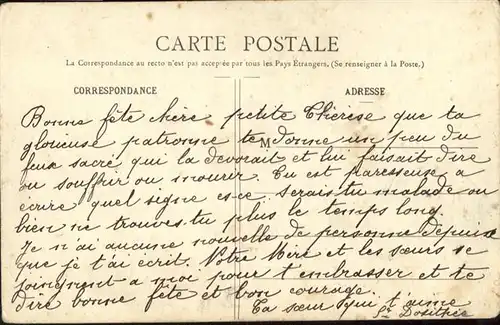 CARTE POSTALE
La Correspondance au recto n'est pas acceptée par tous les Pays Étrangers. (Se renseigner à la Poste.)
CORRESPONDANCE
ADRESSE
Bonne fête chère petite Thérèse que ta
glorieuse patronne te donne un peu du
M
feux sacré qui la dévorait et lui faisait dire
ou souffrir ou mourir. Tu est paresseuse a
écrire quel signe es-ce serais tu malade ou
bien ne trouves tu plus le temps long.
Je n'ai aucune nouvelle de personne depuis
que je t'ai écrit. Votre Mère et les sœurs se
joingnent a moi pour t'embrasser et te
dire bonne fête et bon courage.
Ta sœur qui t'aime
Sr Dosithée